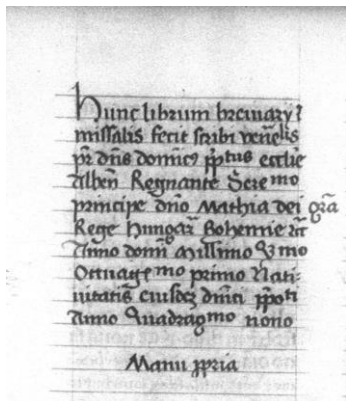 Hunc librum breviarij ⁊
missalis fecit scribi venelis
pr dns domicꝰ ppͭtus ecclie
Alben Regnante Sere mo
principe dno Mathia dei gra
Rege Hungar Bohemie
Anno domi Millimo mo
Octuage mo primo Nati-
uitatis eiusdez dmci ppoti
Anno Quadrag mo nono
Manu ppria